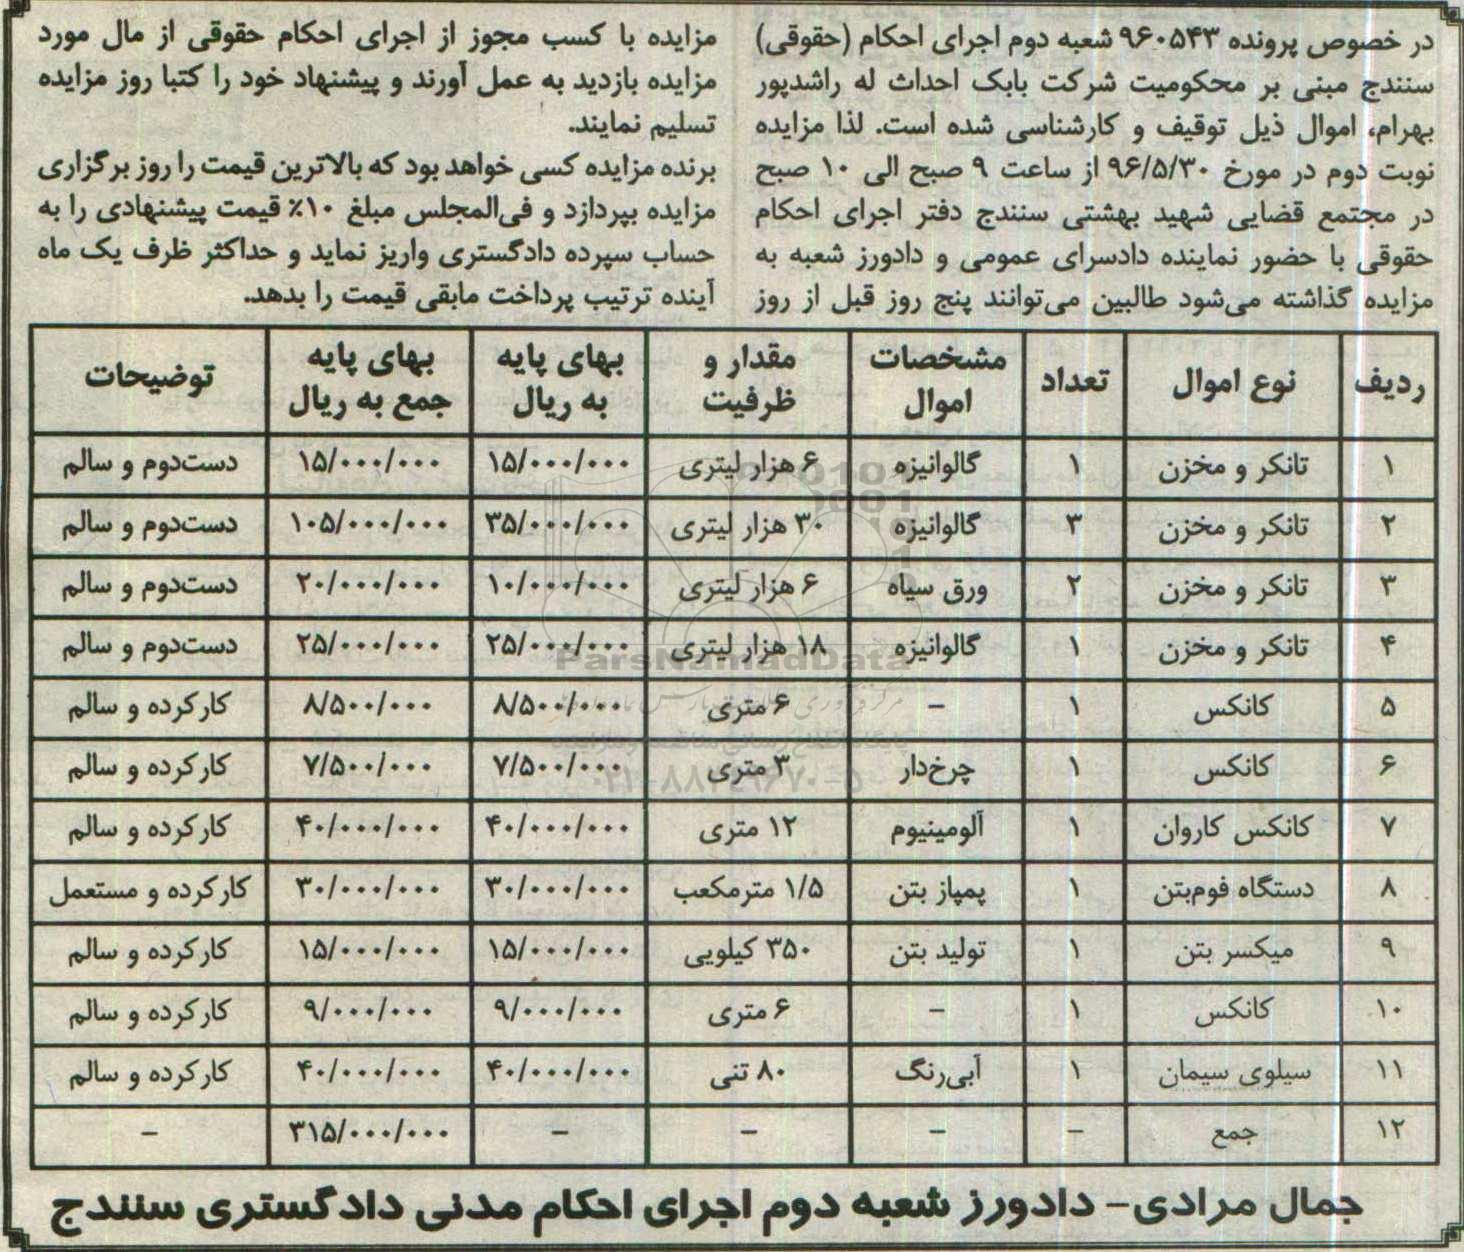 در خصوص پرونده ۹۶۰۵۴۳ شعبه دوم اجرای احکام (حقوقی)
سنندج مبنی بر محکومیت شرکت بابک احداث له راشدپور
بهرام، اموال ذیل توقیف و کارشناسی شده است. لذا مزایده
نوبت دوم در مورخ ۹۶/۵/۳۰ از ساعت ۹ صبح الی ۱۰ صبح
در مجتمع قضایی شهید بهشتی سنندج دفتر اجرای احکام
حقوقی با حضور نماینده دادسرای عمومی و دادورز شعبه به
مزایده گذاشته می‌شود طالبین می‌توانند پنج روز قبل از روز
مزایده با کسب مجوز از اجرای احکام حقوقی از مال مورد
مزایده بازدید به عمل آورند و پیشنهاد خود را کتبا روز مزایده
تسلیم نمایند.
برنده مزایده کسی خواهد بود که بالاترین قیمت را روز برگزاری
مزایده بپردازد و فی‌المجلس مبلغ ۱۰٪ قیمت پیشنهادی را به
حساب سپرده دادگستری واریز نماید و حداکثر ظرف یک ماه
آینده ترتیب پرداخت مابقی قیمت را بدهد.
ردیف نوع اموال تعداد مشخصات اموال مقدار و ظرفیت بهای پایه به ریال بهای پایه جمع به ریال توضیحات
۱ تانکر و مخزن ۱ گالوانیزه ۶ هزار لیتری ۱۵/۰۰۰/۰۰۰ ۱۵/۰۰۰/۰۰۰ دست‌دوم و سالم
۲ تانکر و مخزن ۳ گالوانیزه ۳۰ هزار لیتری ۳۵/۰۰۰/۰۰۰ ۱۰۵/۰۰۰/۰۰۰ دست‌دوم و سالم
۳ تانکر و مخزن ۲ ورق سیاه ۶ هزار لیتری ۱۰/۰۰۰/۰۰۰ ۲۰/۰۰۰/۰۰۰ دست‌دوم و سالم
۴ تانکر و مخزن ۱ گالوانیزه ۱۸ هزار لیتری ۲۵/۰۰۰/۰۰۰ ۲۵/۰۰۰/۰۰۰ دست‌دوم و سالم
۵ کانکس ۱ – ۶ متری ۸/۵۰۰/۰۰۰ ۸/۵۰۰/۰۰۰ کارکرده و سالم
۶ کانکس ۱ چرخ‌دار ۳ متری ۷/۵۰۰/۰۰۰ ۷/۵۰۰/۰۰۰ کارکرده و سالم
۷ کانکس کاروان ۱ آلومینیوم ۱۲ متری ۴۰/۰۰۰/۰۰۰ ۴۰/۰۰۰/۰۰۰ کارکرده و سالم
۸ دستگاه فوم‌بتن ۱ پمپاز بتن ۱/۵ مترمکعب ۳۰/۰۰۰/۰۰۰ ۳۰/۰۰۰/۰۰۰ کارکرده و مستعمل
۹ میکسر بتن ۱ تولید بتن ۳۵۰ کیلویی ۱۵/۰۰۰/۰۰۰ ۱۵/۰۰۰/۰۰۰ کارکرده و سالم
۱۰ کانکس ۱ – ۶ متری ۹/۰۰۰/۰۰۰ ۹/۰۰۰/۰۰۰ کارکرده و سالم
۱۱ سیلوی سیمان ۱ آبی‌رنگ ۸۰ تنی ۴۰/۰۰۰/۰۰۰ ۴۰/۰۰۰/۰۰۰ کارکرده و سالم
۱۲ جمع – – – – ۳۱۵/۰۰۰/۰۰۰ –
ParsNamadData
جمال مرادی– دادورز شعبه دوم اجرای احکام مدنی دادگستری سنندج